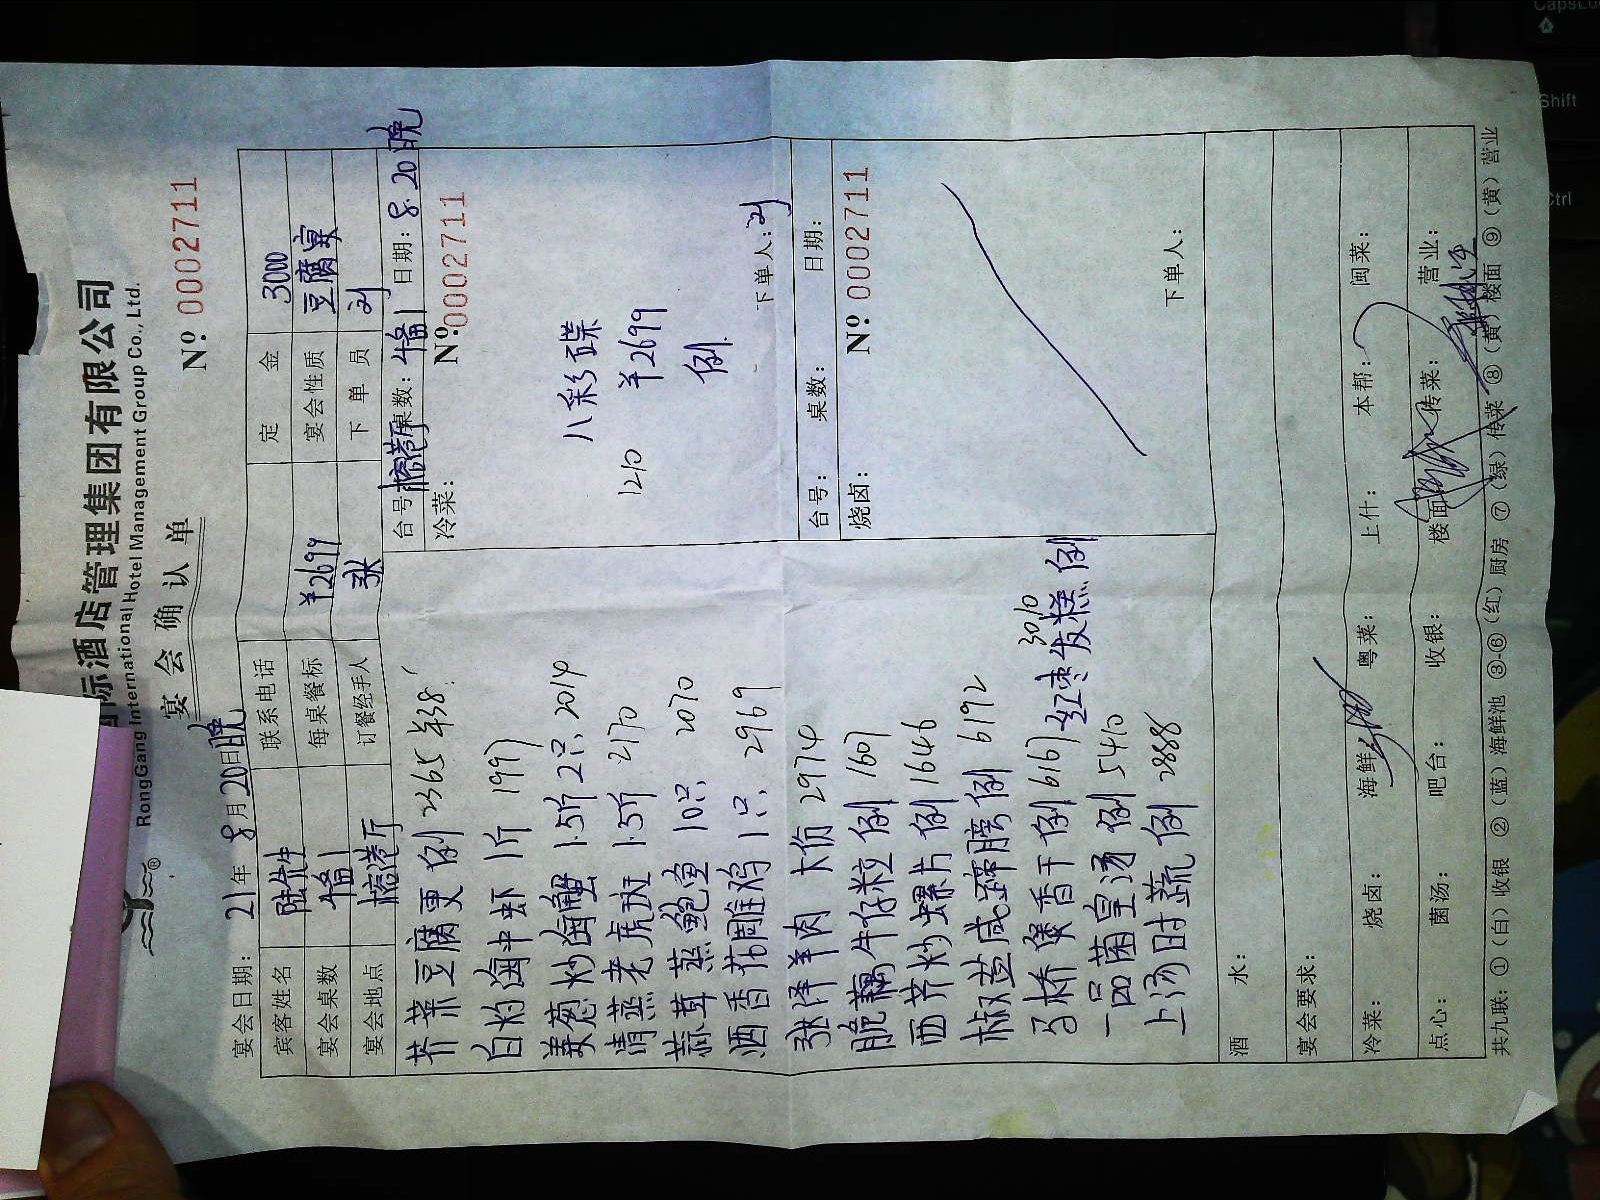 国际酒店管理集团有限公司
RongGang International Hotel Management Group Co., Ltd.
宴会确认单
№ 0002711
宴会日期：21年8月20日晚
宾客姓名 陆先生 联系电话 定金 3000
宴会桌数 每桌餐标 ¥2699 宴会性质 豆腐宴
宴会地点 榕港厅 订餐经手人 张 下单员 刘
荠菜豆腐更 例 2365
白灼海中虾 1斤 1997
姜葱炒海蟹 1.5斤2只 2014
清蒸老虎斑 1.5斤 2170
蒜茸蒸鲍鱼 10只 2070
酒香花雕鸡 1只 2969
张泽羊肉 大份 2974
脆藕牛仔粒 例 1607
西芹炒螺片 例 1646
椒盐咸蹄膀 例 6192
马桥煲香干 例 6167
红枣发糕 例 3010
一品菌皇汤 例 5410
上汤时蔬 例 2888
台号：榕港厅 桌数： 日期：8.20晚
冷菜：
№ 0002711
八彩碟
1210 ¥2699
例
下单人：刘
台号： 桌数： 日期：
烧卤：
№ 0002711
下单人：
酒水：
宴会要求：
冷菜： 烧卤： 海鲜： 粤菜： 上什： 本帮： 闽菜：
点心： 菌汤： 吧台： 收银： 楼面 传菜： 营业：
共九联：①（白）收银 ②（蓝）海鲜池 ③-⑥（红）厨房 ⑦（绿）传菜 ⑧（黄）楼面 ⑨（黄）营业
CapsLo
Shift
Ctrl